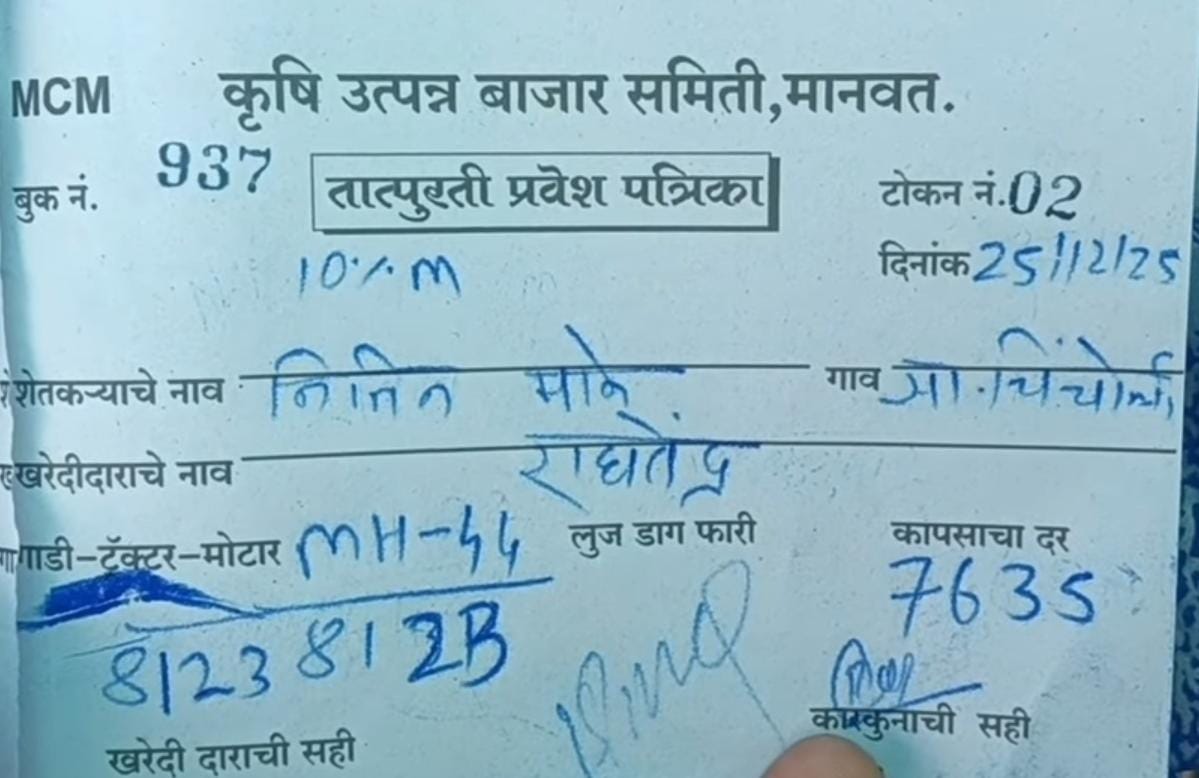 MCM कृषि उत्पन्न बाजार समिती,मानवत.
बुक नं. 937 तात्पुरती प्रवेश पत्रिका टोकन नं.02
10% M दिनांक 25/12/25
शेतकऱ्याचे नाव नितिन माने गाव
खरेदीदाराचे नाव राघवेंद्र
गाडी-ट्रॅक्टर-मोटार MH-44 लुज डाग फारी कापसाचा दर
8123 7635
खरेदी दाराची सही कारकुनाची सही